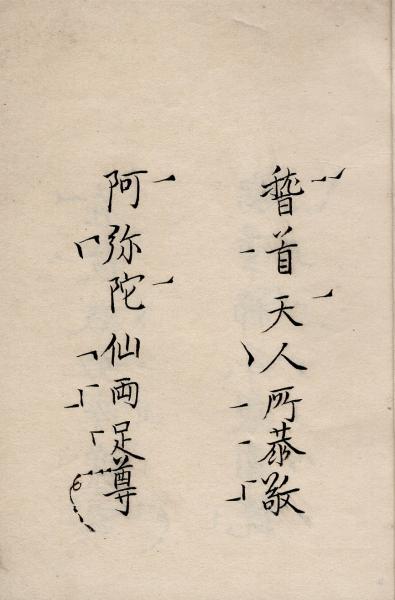 稽首天人所恭敬
阿弥陀仙両足尊